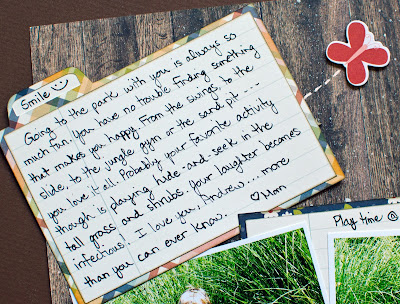 Smile
Going to the park with you is always so
much fun. You have no trouble finding something
that makes you happy. From the swings, to the
slide, to the jungle gym or the sand pit ....
you love it all. Probably your favorite activity
though is playing hide-and-seek in the
tall grass and shrubs. Your laughter becomes
infectious. I love you, Andrew.... more
than you can ever know. ♡Mom
Play time @